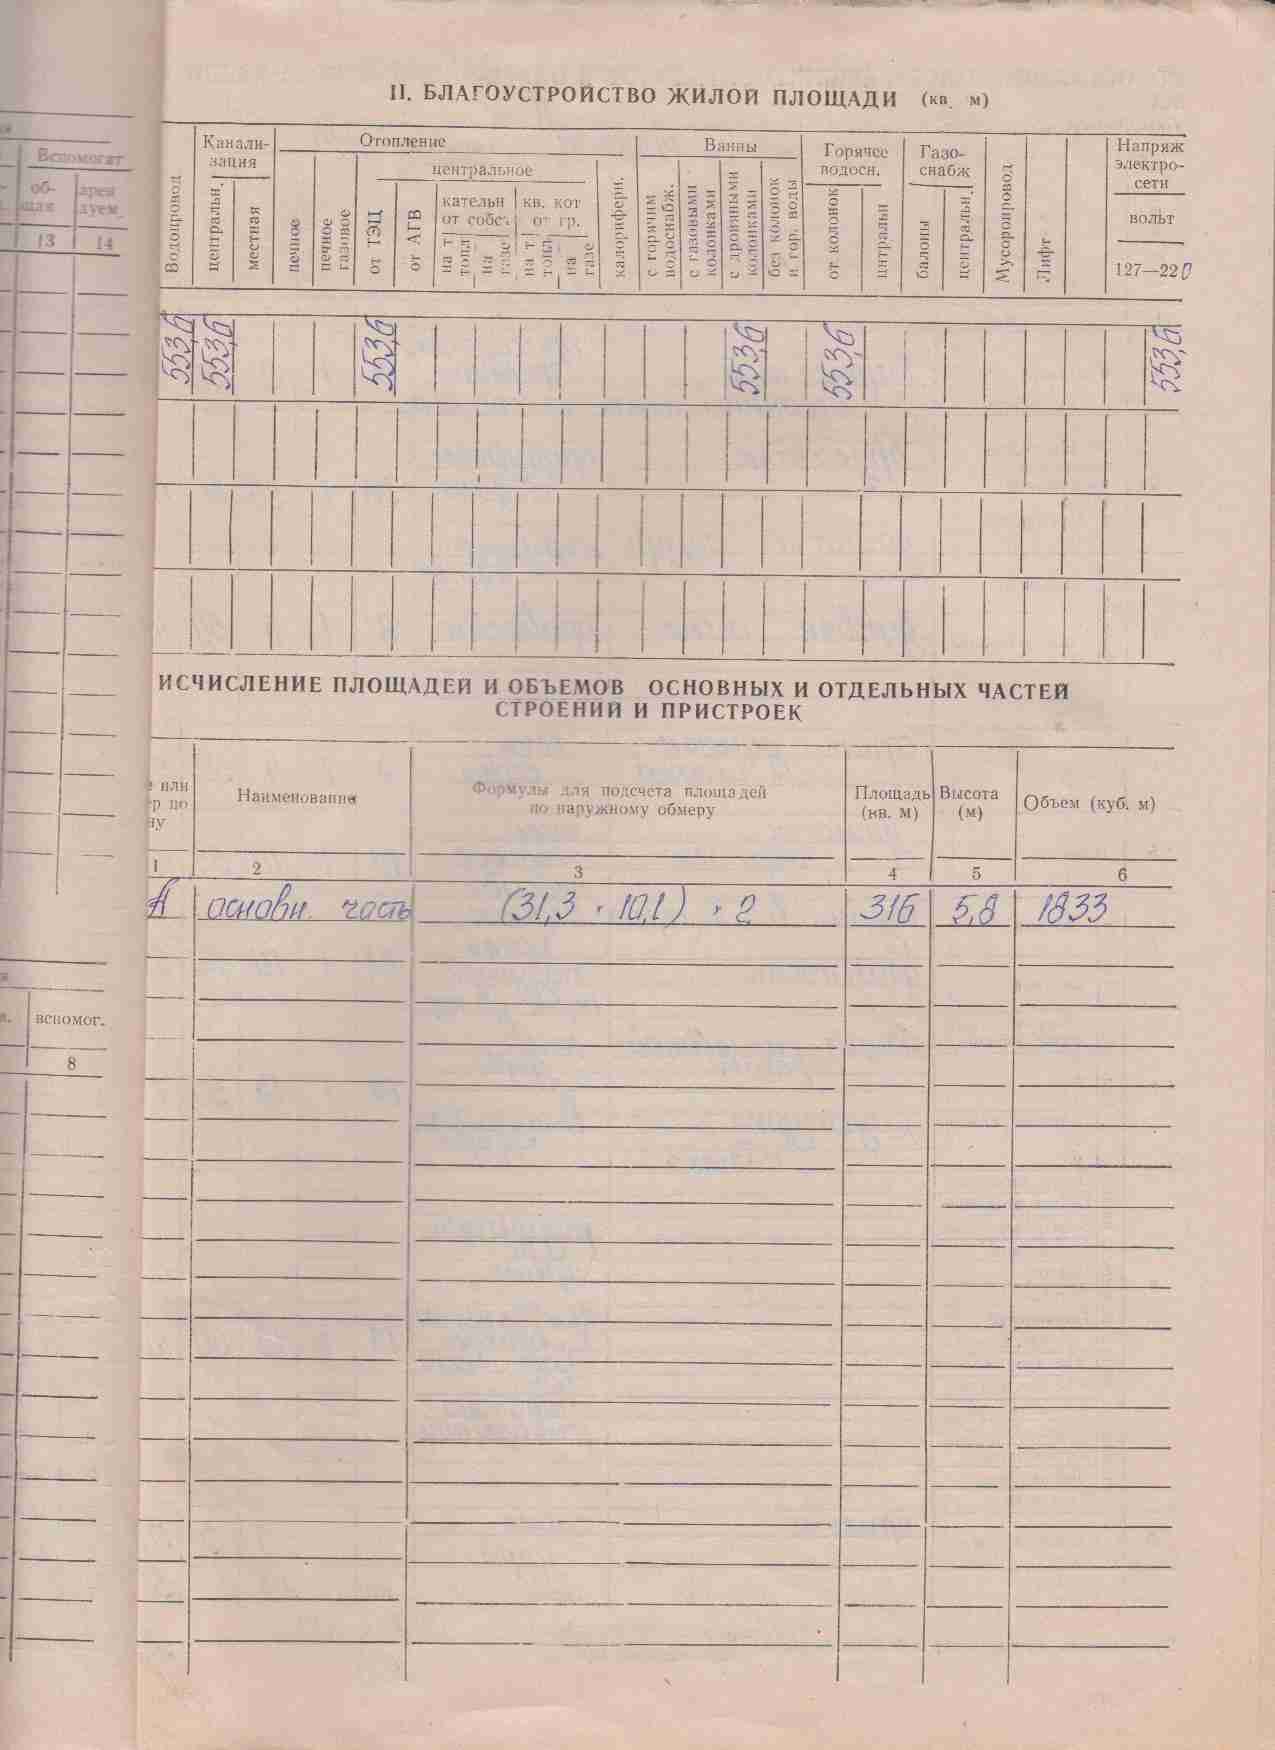 II. БЛАГОУСТРОЙСТВО ЖИЛОЙ ПЛОЩАДИ (кв. м)
Вспомогат
об-
щая
арен
дуем.
13
14
Водопровод
Канали-
зация
центральн.
местная
Отопление
печное
печное
газовое
центральное
от ТЭЦ
от АГВ
кательн
от собст.
на т
топл
на
газе
кв. кот
от гр.
на т.
топл
на
газе
калориферн.
Ванны
с горячим
водоснабж.
с газовыми
колонками
с дровяными
колонками
без колонок
и гор. воды
Горячее
водосн.
от колонок
центральн
Газо-
снабж
балоны
центральн.
Мусоропровод
Лифт
Напряж
электро-
сети
вольт
127—220
553,6 553,6 553,6 553,6 553,6 553,6
ИСЧИСЛЕНИЕ ПЛОЩАДЕЙ И ОБЪЕМОВ ОСНОВНЫХ И ОТДЕЛЬНЫХ ЧАСТЕЙ
СТРОЕНИЙ И ПРИСТРОЕК
или
р по
ну
Наименование
Формулы для подсчета площадей
по наружному обмеру
Площадь
(кв. м)
Высота
(м)
Объем (куб. м)
1 2 3 4 5 6
А основн. часть (31,3 · 10,1) · 2 316 5,8 1833
вспомог.
8